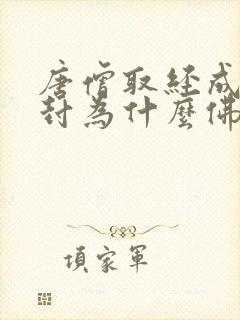 唐僧取經成
封為什麼佛
項家軍